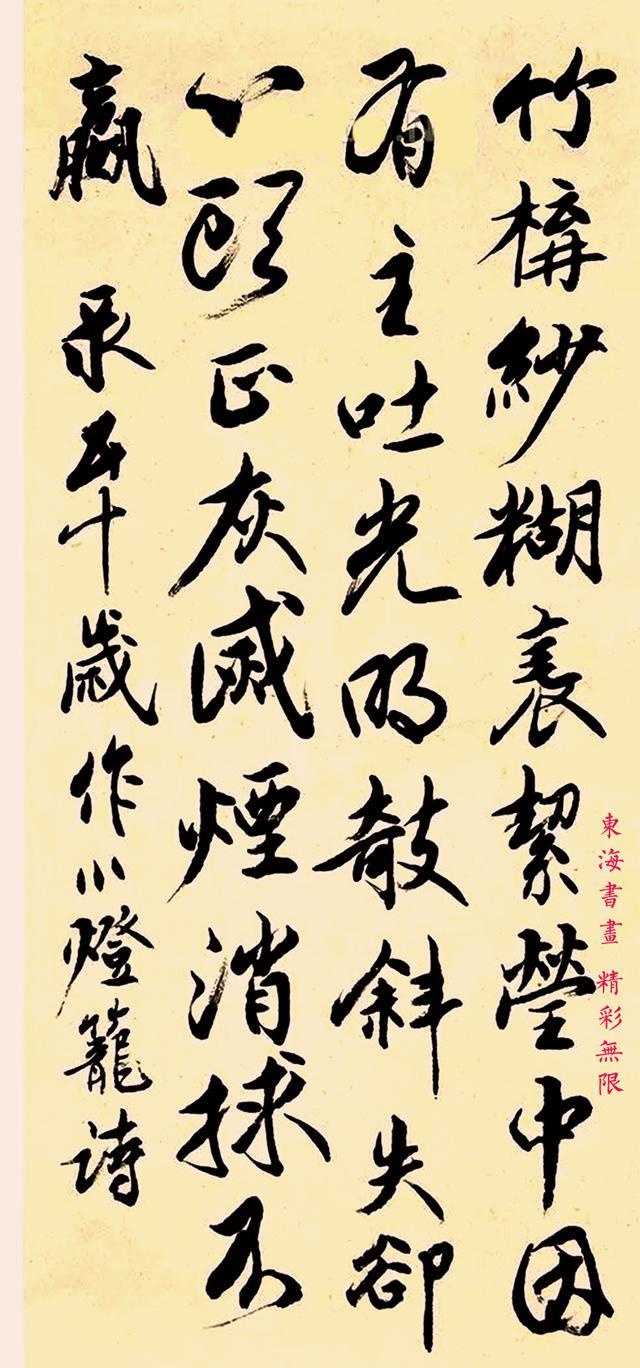 竹構紗糊表絜瑩中因
有主吐光明攲斜失卻
心頭正灰滅煙消捄不
贏 录五十歲作小燈籠詩
東海書畫 精彩無限